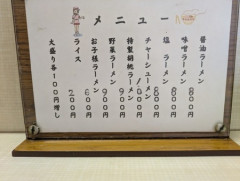 メニュー
醤油ラーメン 800
味噌ラーメン 800
塩 ラーメン 800
チャーシューメン 1000
特製胡桃ラーメン 900
野菜ラーメン 900
お子様ラーメン 600
ライス 200
大盛り各100円増し